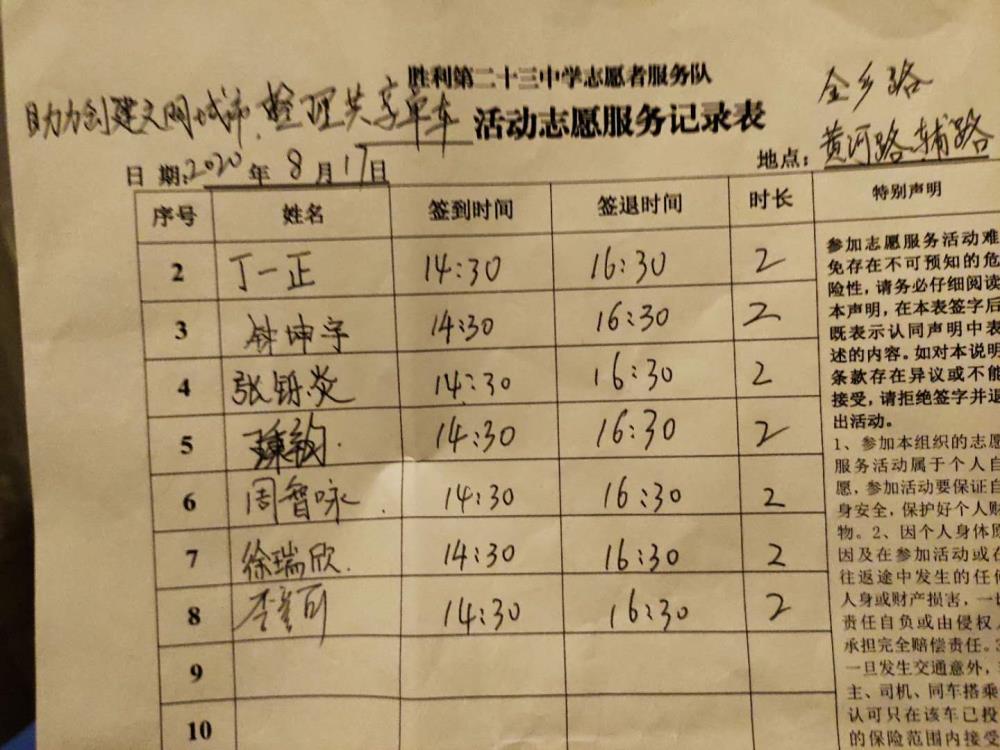 胜利第二十三中学志愿者服务队
助力创建文明城市,整理共享单车 活动志愿服务记录表
金乡路
日 期:2020 年 8 月 17日 地点: 黄河路辅路
序号 姓名 签到时间 签退时间 时长 特别声明
2 丁一正 14:30 16:30 2
3 钟坤宇 14:30 16:30 2
4 张铄炎 14:30 16:30 2
5 14:30 16:30 2
6 周智咏 14:30 16:30 2
7 徐瑞欣 14:30 16:30 2
8 14:30 16:30 2
9
10
参加志愿服务活动难
免存在不可预知的危
险性,请务必仔细阅读
本声明,在本表签字后
既表示认同声明中表
述的内容。如对本说明
条款存在异议或不能
接受,请拒绝签字并退
出活动。
1、参加本组织的志愿
服务活动属于个人自
愿,参加活动要保证自
身安全,保护好个人财
物。2、因个人身体原
因及在参加活动或在
往返途中发生的任何
人身或财产损害,一切
责任自负或由侵权人
承担完全赔偿责任。3
一旦发生交通意外,
主、司机、同车搭乘
认可只在该车已投
的保险范围内接受